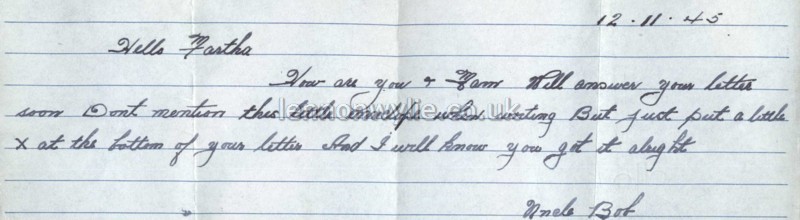 12.11.45
Hello Martha
How are you & Mam Will answer your letter
soon Dont mention this little envelope when writing But just put a little
x at the bottom of your letter And I will know you got it alright
Uncle Bob
leonoawylie.co.uk